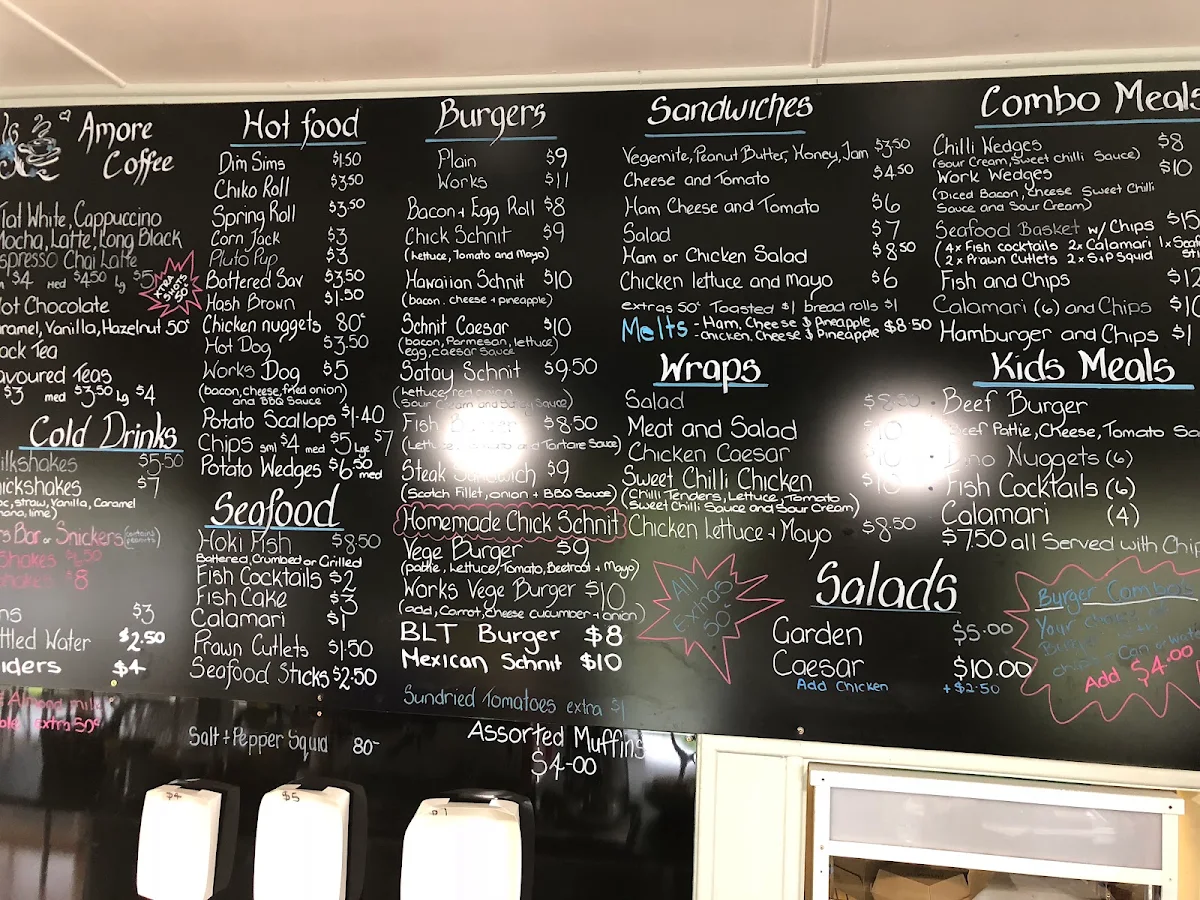 Amore
Coffee
Flat White, Cappuccino
Mocha, Latte, Long Black
Espresso Chai Latte
$4 med $4.50 Lg $5
Xtra
shots
50¢
Hot Chocolate
Caramel, Vanilla, Hazelnut 50¢
Black Tea
Flavoured Teas
$3 med $3.50 Lg $4
Cold Drinks
Milkshakes $5.50
Thickshakes $7
Choc, straw, Vanilla, Caramel
Banana, lime)
Mars Bar or Snickers (contains peanuts)
Shakes $6.50
$8
$3
Bottled Water $2.50
$4
Almond milk
extra 50¢
Hot food
Dim Sims $1.50
Chiko Roll $3.50
Spring Roll $3.50
Corn Jack $3
Pluto Pup $3
Battered Sav $3.50
Hash Brown $1.50
Chicken nuggets 80¢
Hot Dog $3.50
Works Dog $5
(bacon, cheese, fried onion)
and BBQ Sauce
Potato Scallops $1.40
Chips sml $4 med $5 Lge $7
Potato Wedges $6.50 med
Seafood
Hoki Fish $8.50
Battered, Crumbed or Grilled
Fish Cocktails $2
Fish Cake $3
Calamari $1
Prawn Cutlets $1.50
Seafood Sticks $2.50
Salt + Pepper Squid 80-
Burgers
Plain $9
Works $11
Bacon + Egg Roll $8
Chick Schnit $9
(lettuce, Tomato and Mayo)
Hawaiian Schnit $10
(bacon, cheese + pineapple)
Schnit Caesar $10
(bacon, Parmesan, lettuce)
egg, caesar sauce
Satay Schnit $9.50
(lettuce, red onion
Sour Cream and Satay Sauce)
Fish Burger $8.50
(Lettuce, Tomato and Tartare Sauce)
Steak Sandwich $9
(Scotch Fillet, onion + BBQ Sauce)
Homemade Chick Schnit
Vege Burger $9
(pattie, Lettuce, Tomato, Beetroot + Mayo)
Works Vege Burger $10
(add, Carrot, Cheese cucumber + onion)
BLT Burger $8
Mexican Schnit $10
Sundried Tomatoes extra $1
Assorted Muffins
$4-00
Sandwiches
Vegemite, Peanut Butter, Honey, Jam $3.50
Cheese and Tomato $4.50
Ham Cheese and Tomato $6
Salad $7
Ham or Chicken Salad $8.50
Chicken lettuce and mayo $6
extras 50¢ Toasted $1 bread rolls $1
Melts - Ham, Cheese $ Pineapple
- Chicken, Cheese $ Pineapple $8.50
Wraps
Salad $8.50
Meat and Salad
Chicken Caesar
Sweet Chilli Chicken
(Chilli Tenders, Lettuce, Tomato
Sweet Chilli Sauce and Sour Cream)
Chicken Lettuce + Mayo $8.50
All
Extras
50¢
Salads
Garden $5.00
Caesar $10.00
Add Chicken + $2.50
Combo Meals
Chilli Wedges $8
(Sour Cream, Sweet chilli Sauce)
Work Wedges $10
(Diced Bacon, Cheese Sweet Chilli
Sauce and Sour Cream)
Seafood Basket w/ Chips $15
(4x Fish cocktails 2x Calamari 1x
2x Prawn Cutlets 2x S+P Squid
Fish and Chips
Calamari (6) and Chips
Hamburger and Chips
Kids Meals
Beef Burger
Beef Pattie, Cheese, Tomato
Dino Nuggets (6)
Fish Cocktails (6)
Calamari (4)
$7.50 all Served with Chips
Burger Combo's
Your choice of
Burger with
chips + Can or Water
Add $4.00
$4
$5